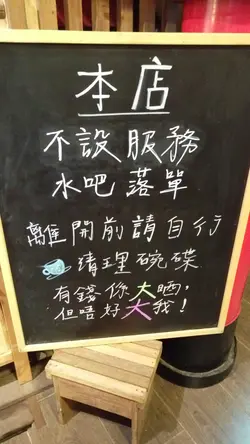 本店
不設服務
水吧落單
離開前請自行
清理碗碟
有錢你大晒,
但唔好大我!